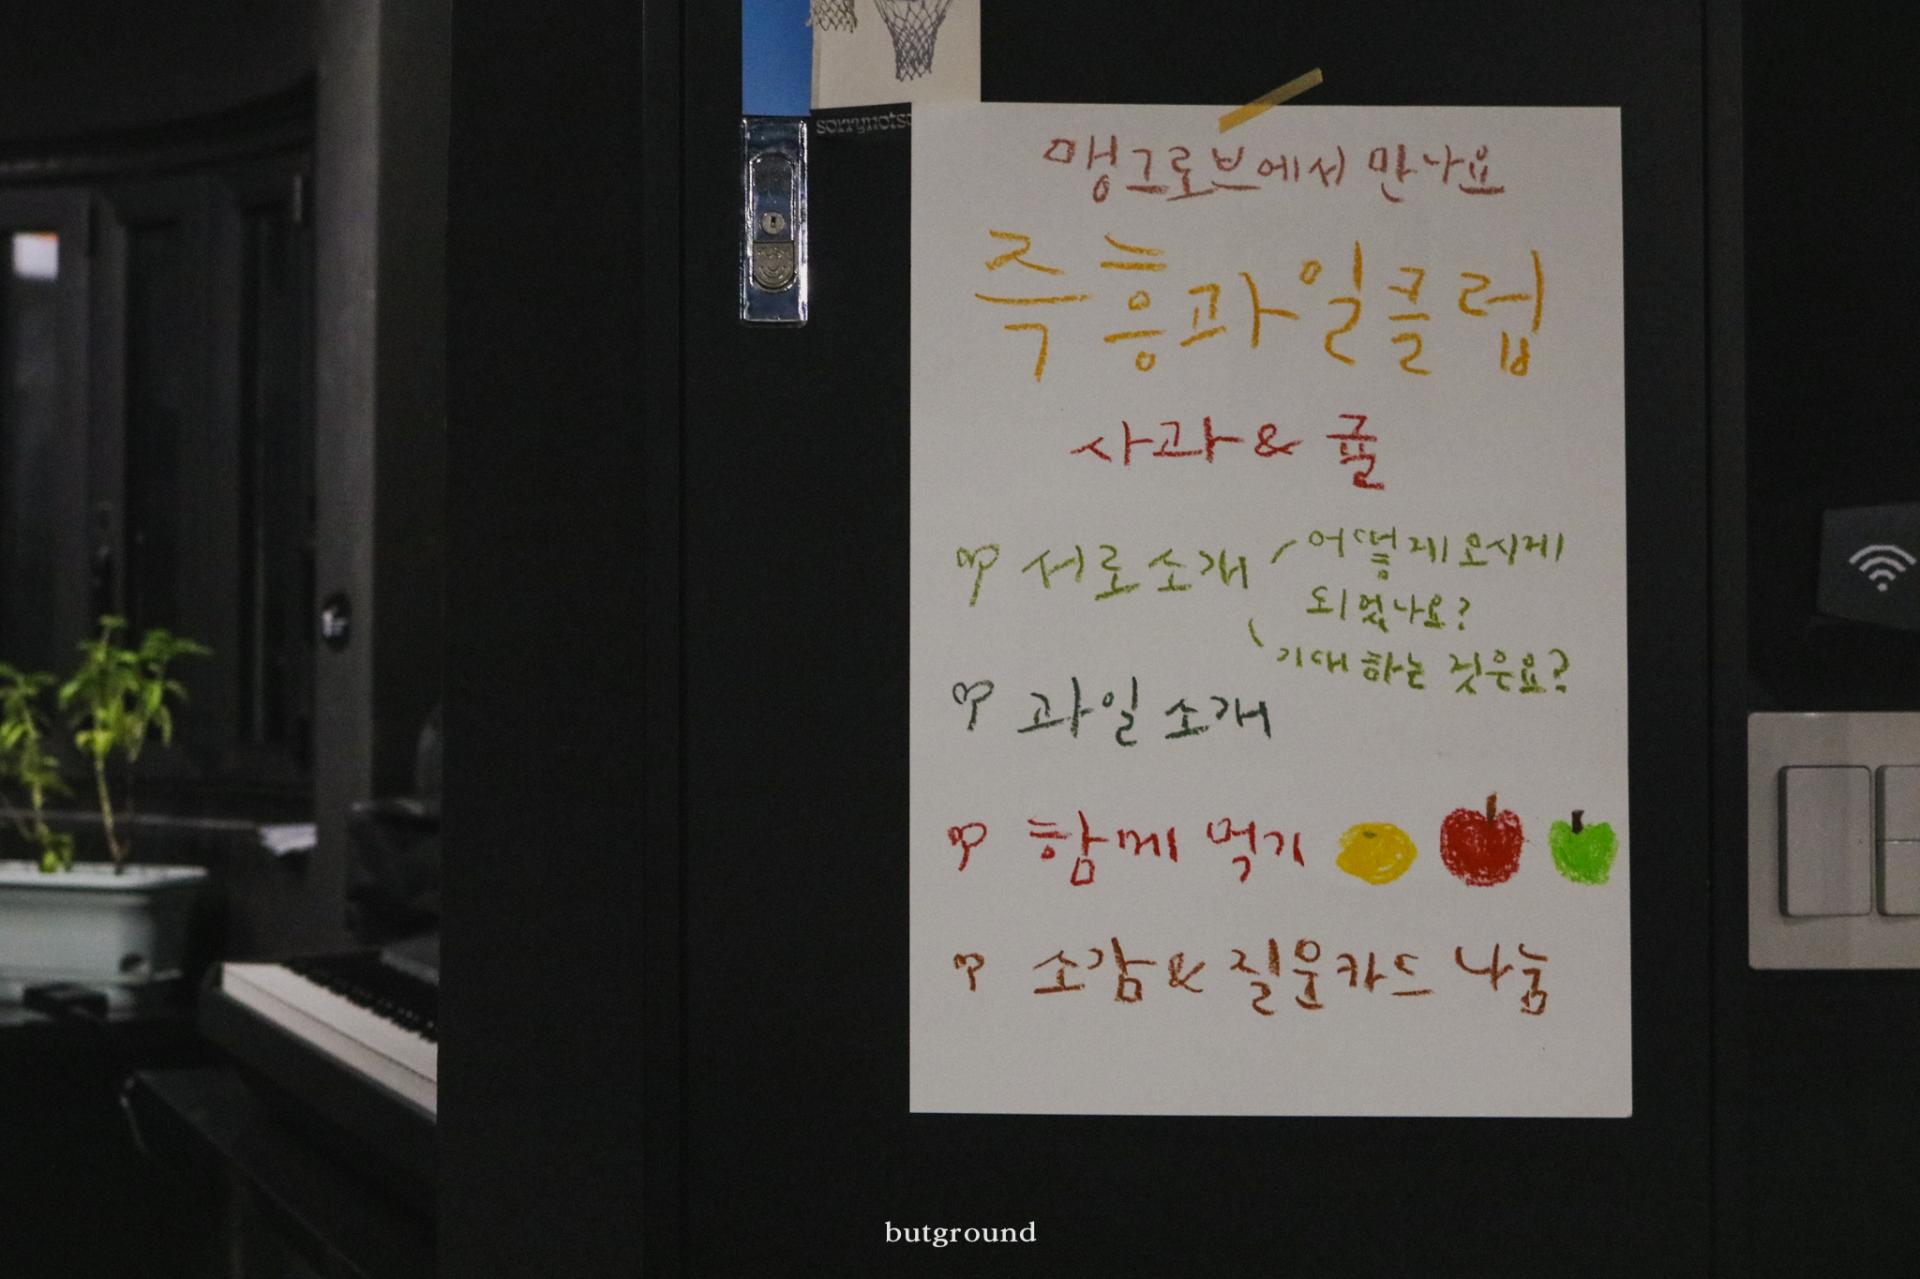 sorrynots
맹그로브에서 만나요
즉흥과일클럽
사과 & 귤
서로소개
어떻게 오시게
되었나요?
기대하는 것은요?
과일 소개
함께 먹기
소감 & 질문카드 나눔
butground